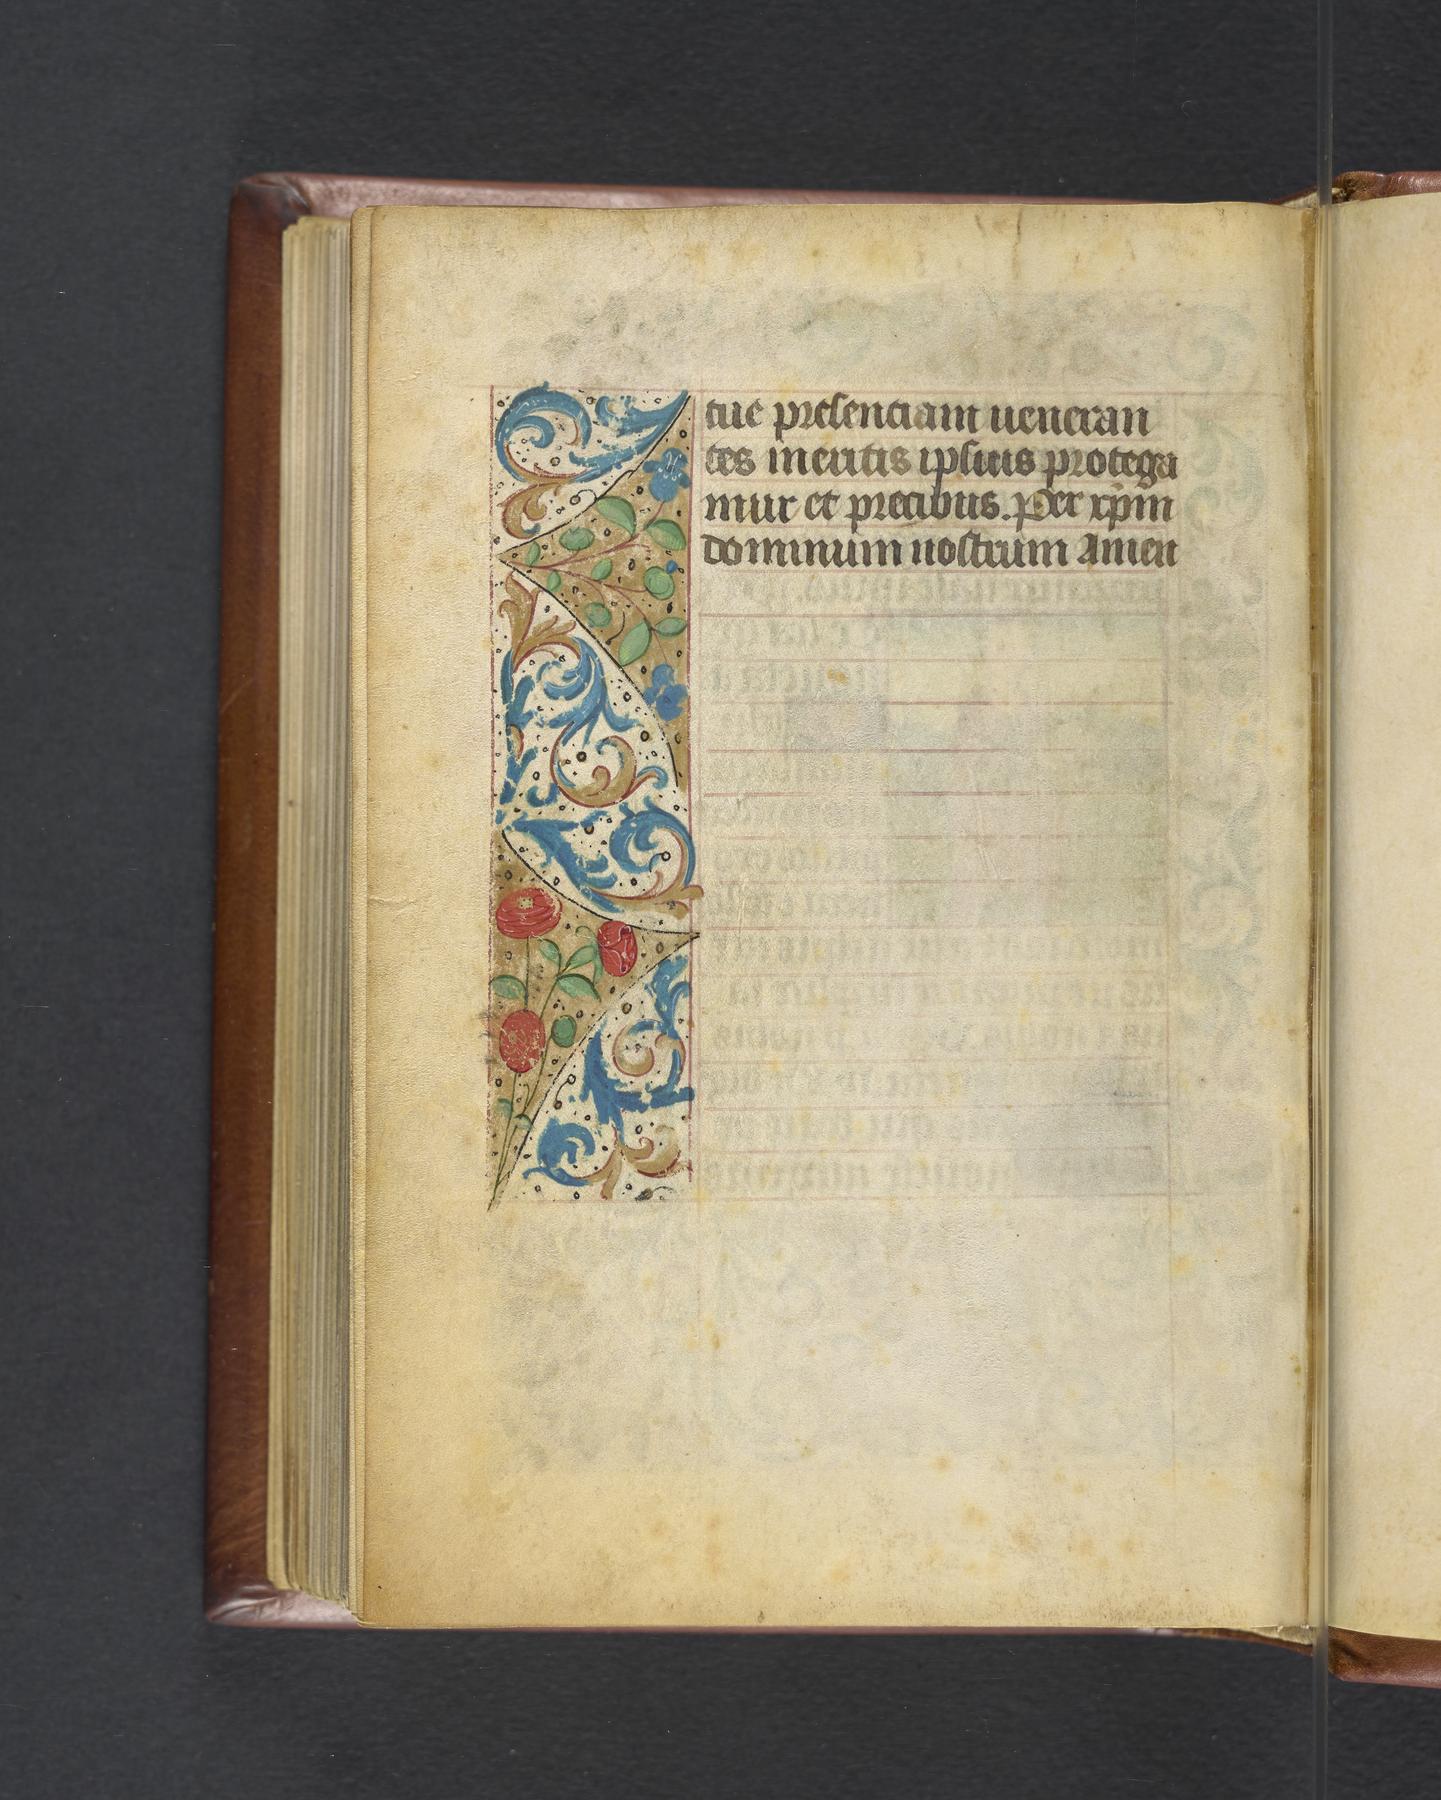 tue presenciam ueneran
tes meritis ipsius protega
mur et precibus. Per xpm
dominum nostrum Amen